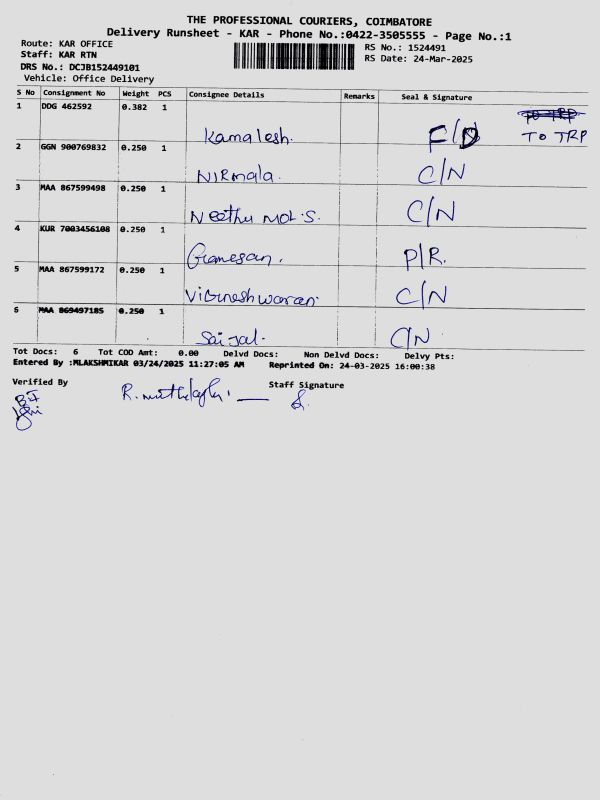 THE PROFESSIONAL COURIERS, COIMBATORE
Delivery Runsheet - KAR - Phone No.:0422-3505555 - Page No.:1
Route: KAR OFFICE RS No.: 1524491
Staff: KAR RTN RS Date: 24-Mar-2025
DRS No.: DCJB152449101
Vehicle: Office Delivery
S No Consignment No Weight PCS Consignee Details Remarks Seal & Signature
1 DDG 462592 0.382 1
Kamalesh. TO TRP
2 GGN 900769832 0.250 1
Nirmala. C/N
3 MAA 867599498 0.250 1
Neethu Mol.S. C/N
4 KUR 7003456108 0.250 1
Ganesan. P/R.
5 MAA 867599172 0.250 1
Vigneshwaran. C/N
6 MAA 869497185 0.250 1
Saijal. C/N
Tot Docs: 6 Tot COD Amt: 0.00 Delvd Docs: Non Delvd Docs: Delvy Pts:
Entered By :MLAKSHMIKAR 03/24/2025 11:27:05 AM Reprinted On: 24-03-2025 16:00:38
Verified By Staff Signature